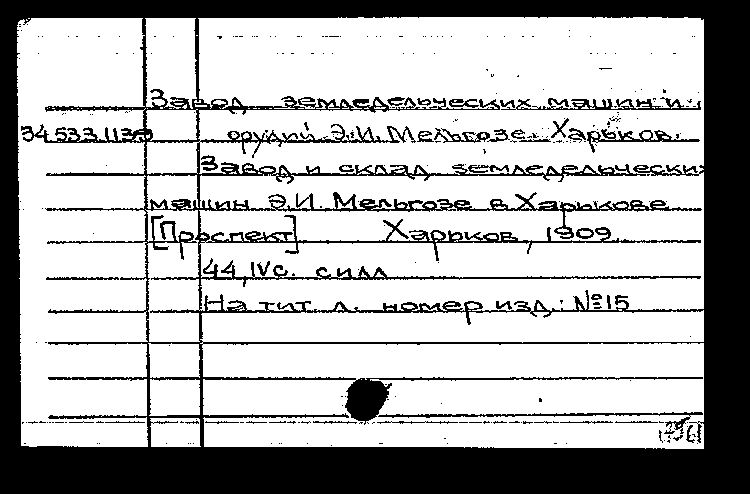 Завод земледельческих машин и
орудий Э.И. Мельгозе. Харьков.
Завод и склад земледельчески
машин Э.И. Мельгозе в Харькове
[Проспект] Харьков, 1909
44, IV с. с илл
На тит л. номер изд. №15